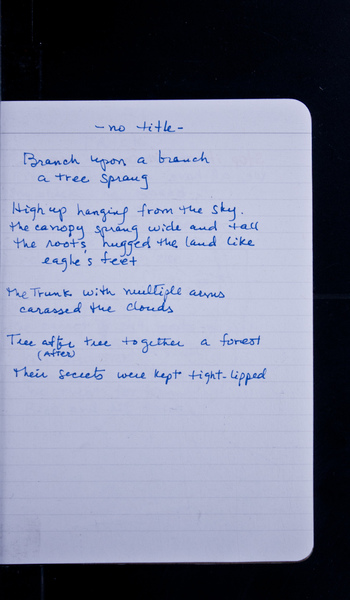 - no title -
Branch upon a branch
a tree sprang
High up hanging from the sky.
the canopy sprang wide and tall
the roots hugged the land like
eagle's feet
the Trunk with multiple arms
carassed the clouds
Tree after tree together a forest
(AFTER)
their secrets were kept tight-lipped